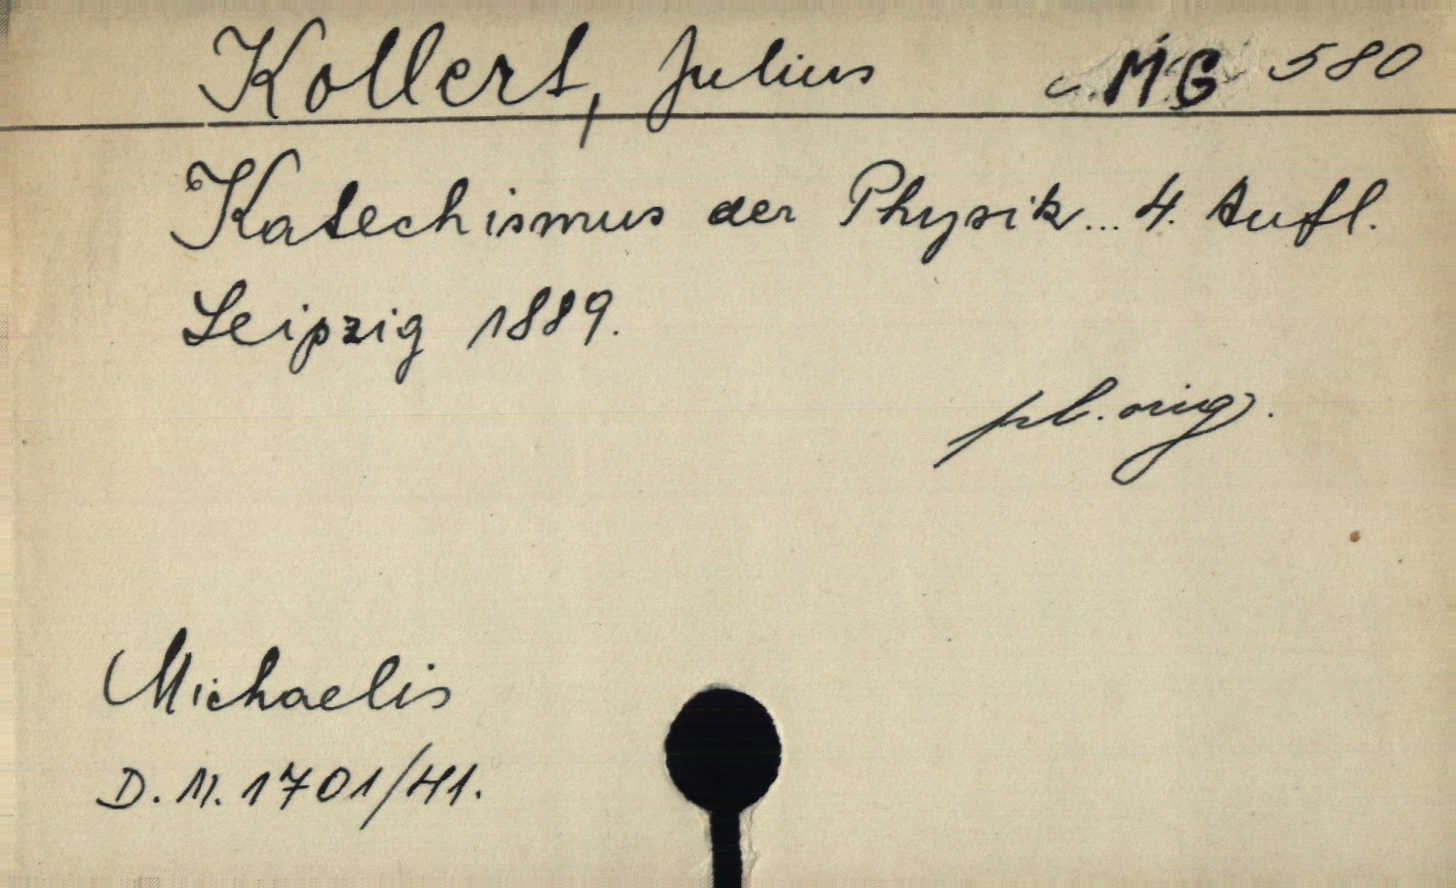 Kollert, Julius MG 580
Katechismus der Physik... 4. Aufl.
Leipzig 1889.
pl. orig.
Michaelis
D. N. 1701/41.